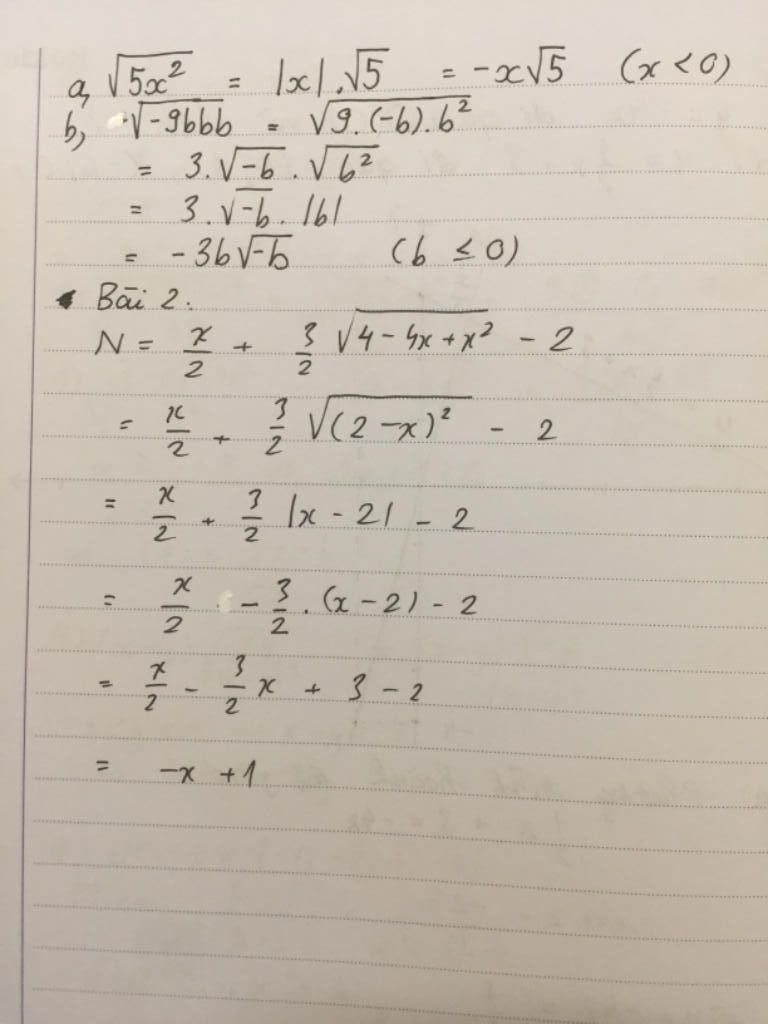 a, √(5x²) = |x|.√5 = -x√5 (x < 0)
b, √(-9bbb) = √(9.(-b).b²)
= 3.√(-b).√(b²)
= 3.√(-b).|b|
= -3b√(-b) (b ≤ 0)
Bài 2:
N = x/2 + 3/2 √(4-4x+x²) - 2
= x/2 + 3/2 √((2-x)²) - 2
= x/2 + 3/2 |x-2| - 2
= x/2 - 3/2.(x-2) - 2
= x/2 - 3/2 x + 3 - 2
= -x + 1